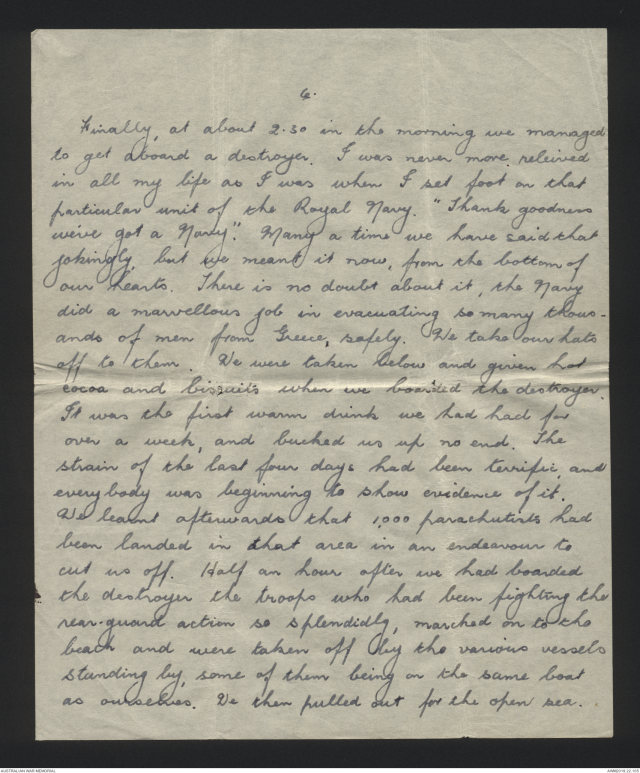 6.
Finally, at about 2.30 in the morning we managed
to get aboard a destroyer. I was never more releived
in all my life as I was when I set foot on that
particular unit of the Royal Navy. "Thank goodness
we've got a Navy". Many a time we have said that
jokingly, but we meant it now, from the bottom of
our hearts. There is no doubt about it, the Navy
did a marvellous job in evacuating so many thous-
ands of men from Greece, safely. We take our hats
off to them. We were taken below and given hot
cocoa and biscuits when we boarded the destroyer.
It was the first warm drink we had had for
over a week, and bucked us up no end. The
strain of the last four days had been terrific, and
everybody was beginning to show evidence of it.
We learnt afterwards that 1,000 parachutists had
been landed in that area in an endeavour to
cut us off. Half an hour after we had boarded
the destroyer the troops who had been fighting the
rear-guard action so splendidly, marched on to the
beach and were taken off by the various vessels
standing by, some of them being on the same boat
as ourselves. We then pulled out for the open sea.
AUSTRALIAN WAR MEMORIAL